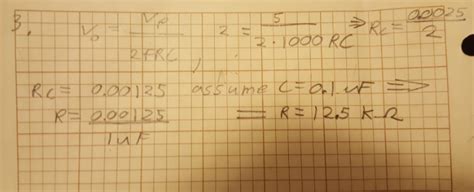 3. Vo = Vp / 2FRC , 2 = 5 / 2·1000 RC ⇒ Rc = 0.0025 / 2
Rc = 0.00125 assume C = 0.1 uF ⇒
R = 0.00125 / 1uF = R = 12.5 KΩ